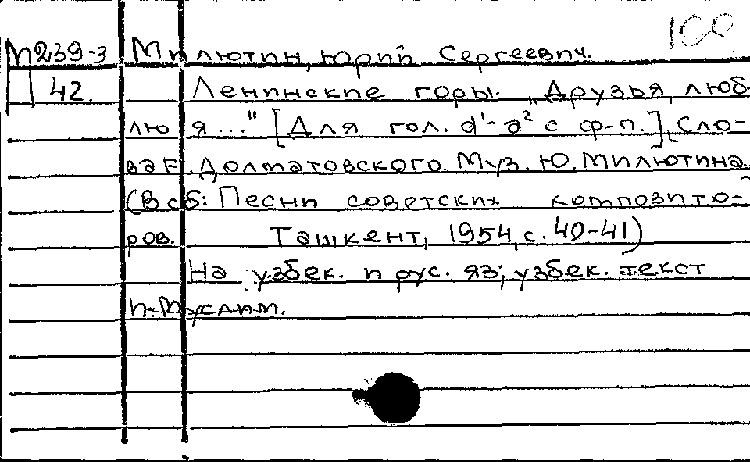 100
М239-3 Милютин, Юрий Сергеевич.
П 42. Ленинские горы. „Друзья, люб-
лю я..." [Для гол. d¹-a² с ф-п.], Сло-
ва Е. Долматовского. Муз. Ю. Милютина.
(В сб: Песни советских композито-
ров. Ташкент, 1954, с. 40-41)
На узбек. и рус. яз; узбек. текст
П. Муслим.